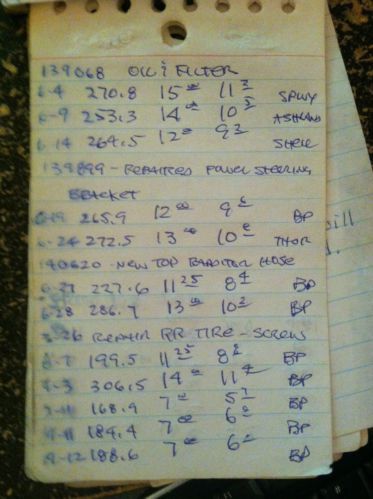 139068 OIL & FILTER
6-4 270.8 15 00 11 3 SPWY
6-9 253.3 14 00 10 5 ASHLAND
6-14 264.5 12 00 9 3 SHELL
139899 - REPAIRED POWER STEERING
BRACKET
6-19 265.9 12 00 BP
6-24 272.5 13 00 THOR
140620 - NEW TOP RADIATOR HOSE
6-27 227.6 11 25 8 4 BP
6-28 286.7 13 10 2 BP
REPAIR RR TIRE - SCREW
199.5 11 25 8 BP
306.5 14 00 11 BP
168.9 7 00 BP
184.4 7 00 6 BP
188.6 7 00 6 BP
ill